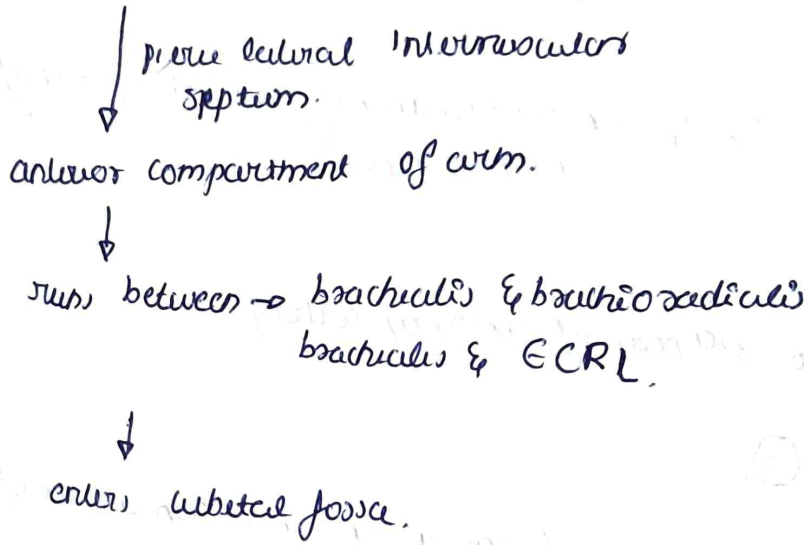 pierce lateral Intermuscular
septum.
anterior compartment of arm.
runs between → brachialis & brachioradialis
brachialis & ECRL.
enters cubital fossa.